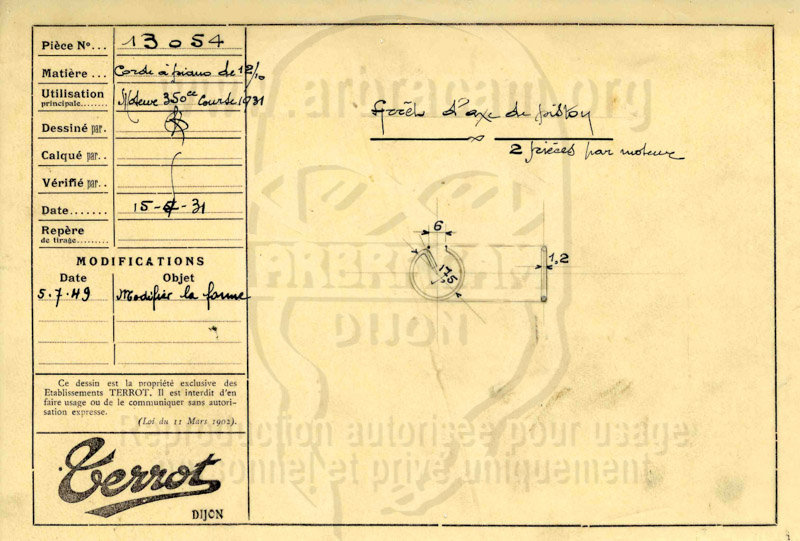 Pièce No... 13054
Matière... Corde à piano de 12/10
Utilisation
principale........ Moteur 350cc Course 1931
Dessiné par.
Calqué par..
Vérifié par..
Date....... 15-5-31
Repère
de tirage..........
MODIFICATIONS
Date Objet
5.7.49 Modifier la forme
Ce dessin est la propriété exclusive des
Etablissements TERROT. Il est interdit d'en
faire usage ou de le communiquer sans autori-
sation expresse.
(Loi du 11 Mars 1902).
Terrot
DIJON
d'axe de piston
2 pièces par moteur
6
17,5
1,2
www.arbracam.org
ARBRACAM
DIJON
Reproduction autorisée pour usage
personnel et privé uniquement